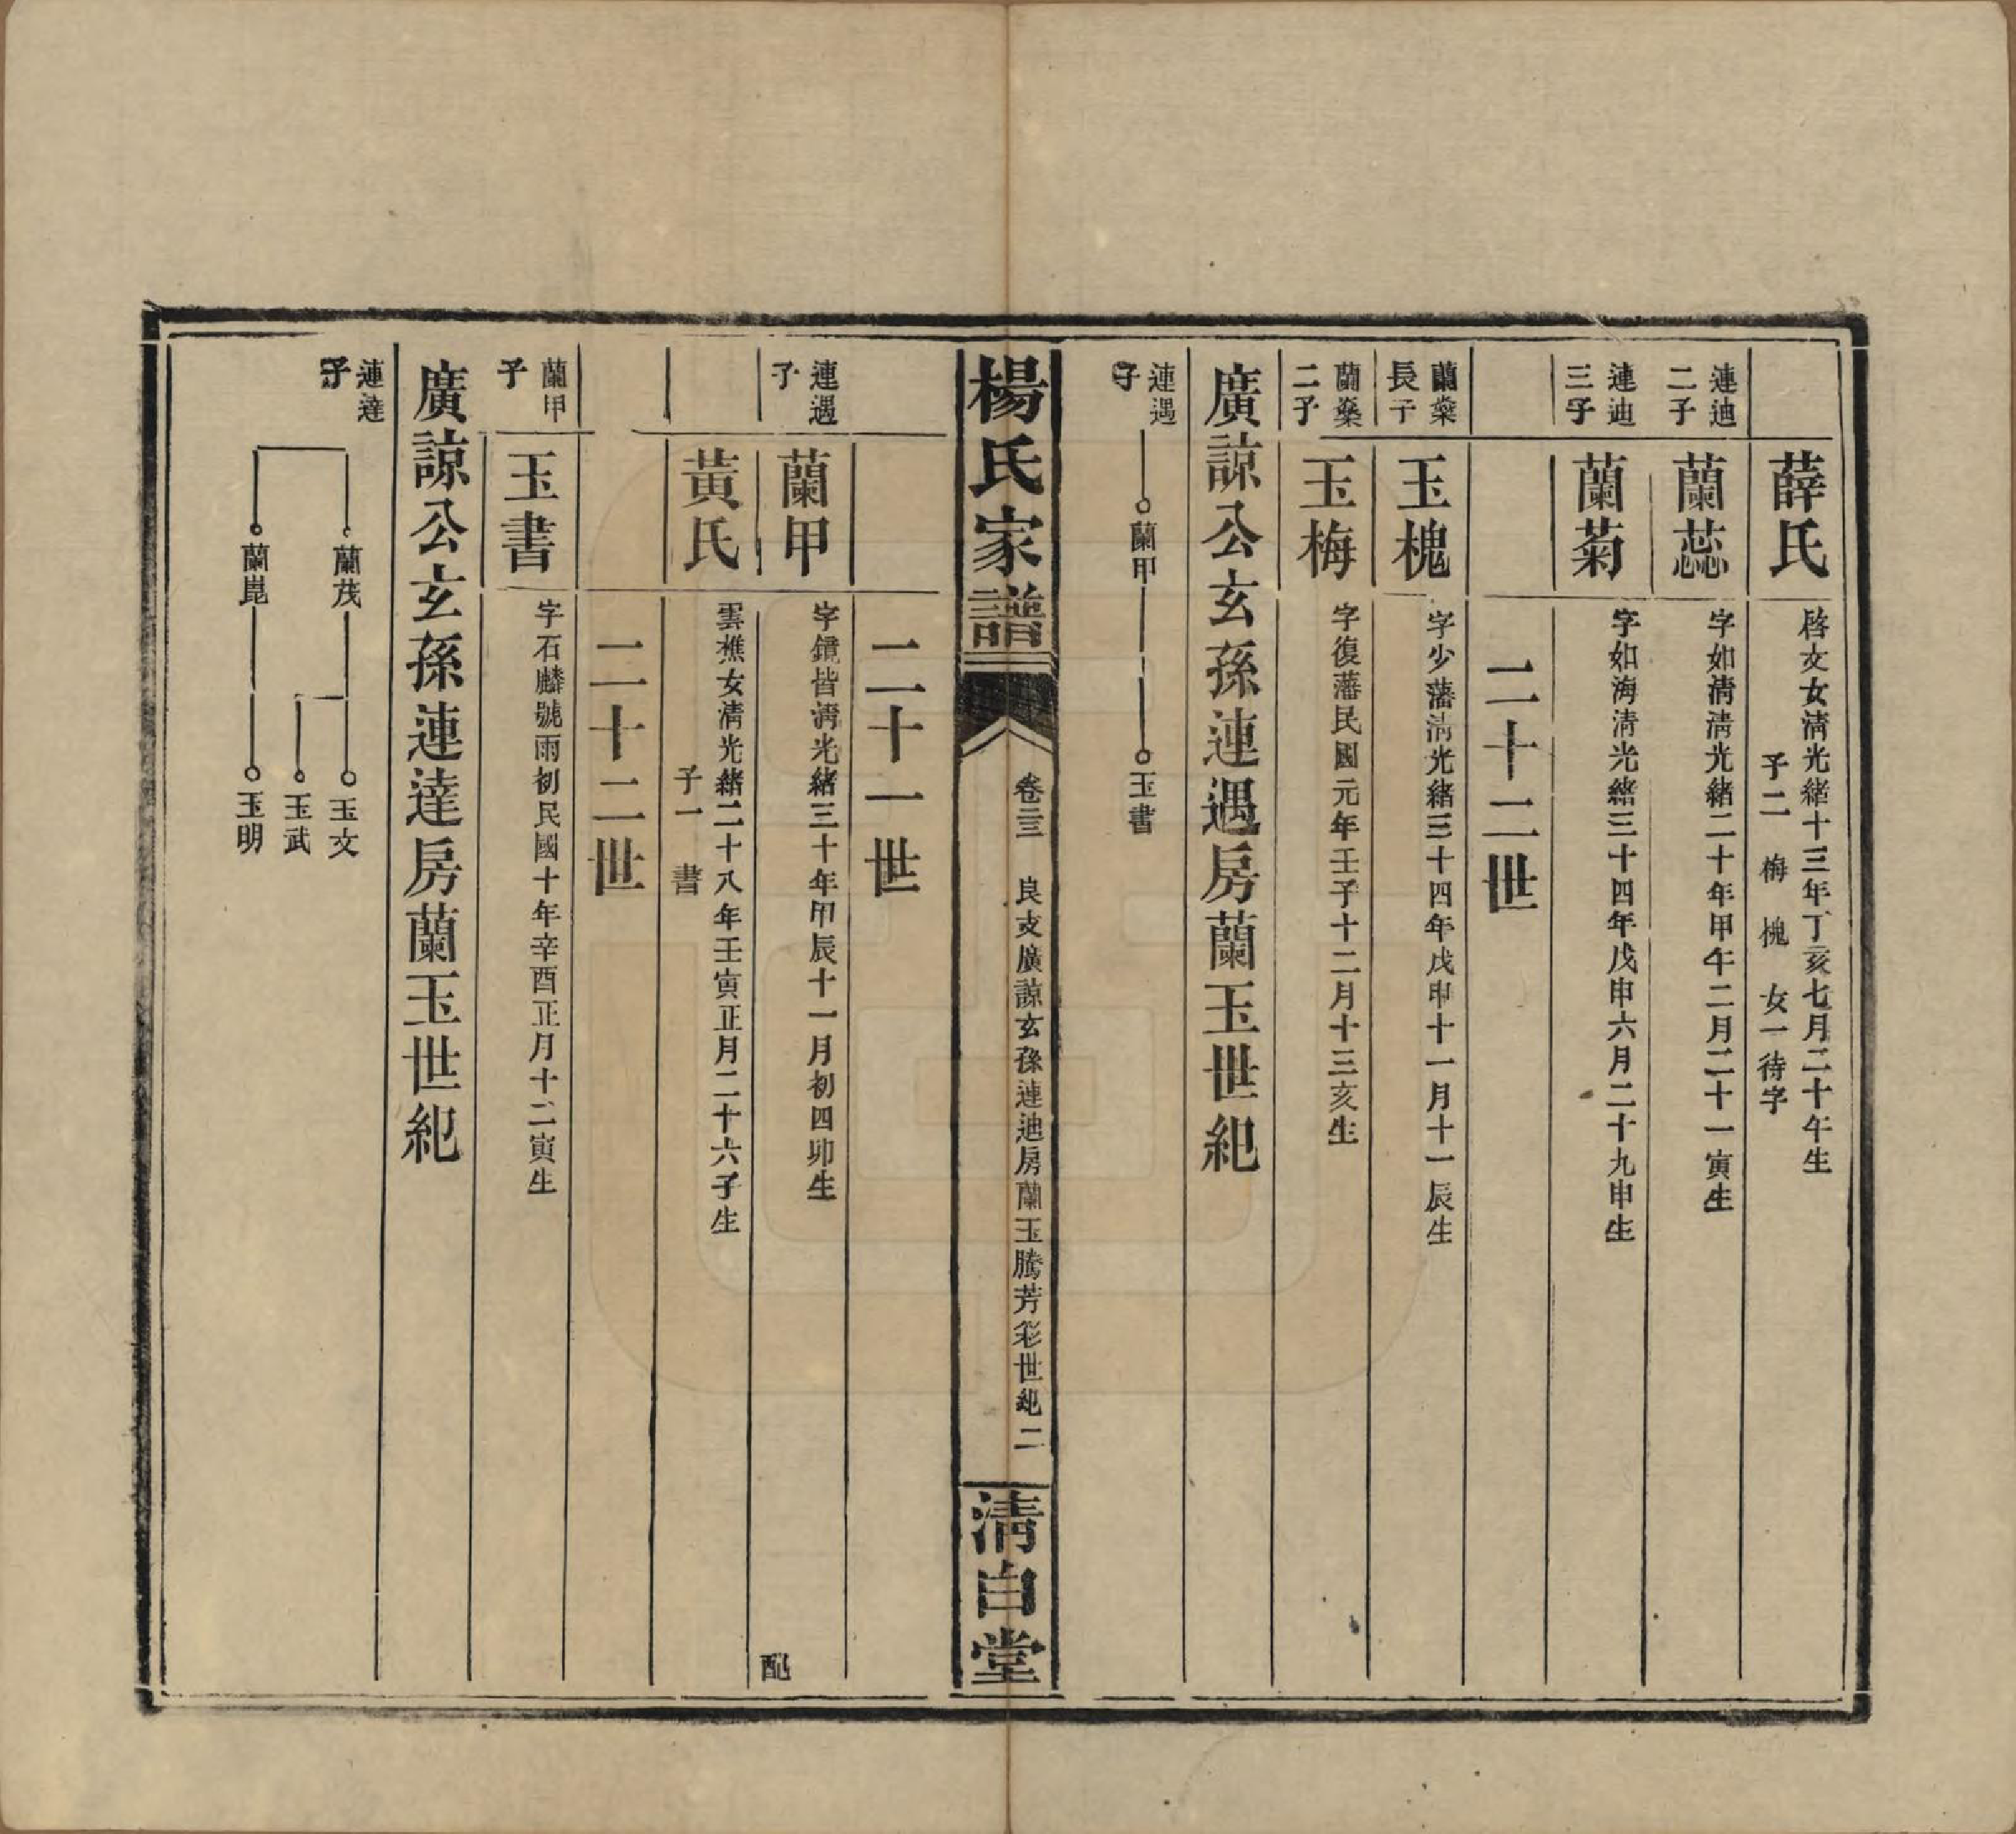 薛氏
啓文女清光緒十三年丁亥七月二十午生
子二 梅 槐 女一待字
連迪
二子
蘭蕊
字如清清光緒二十年甲午二月二十一寅生
連迪
三子
蘭菊
字如海清光緒三十四年戊申六月二十九申生
二十二世
蘭蘂
長子
玉槐
字少藩清光緒三十四年戊申十一月十一辰生
蘭蘂
二子
玉梅
字復藩民國元年壬子十二月十三亥生
廣諒公玄孫連遇房蘭玉世紀
連遇
子
蘭甲
玉書
楊氏家譜
卷三 良支廣諒玄孫連迪房蘭玉騰芳彩世紀 二
清白堂
二十一世
連遇
子
蘭甲
字鏡皆清光緒三十年甲辰十一月初四卯生
配
黃氏
雲樵女清光緒二十八年壬寅正月二十六子生
子一 書
二十二世
蘭甲
子
玉書
字石麟號雨初民國十年辛酉正月十二寅生
廣諒公玄孫連達房蘭玉世紀
連達
子
蘭茂
玉文
玉武
蘭崑
玉明